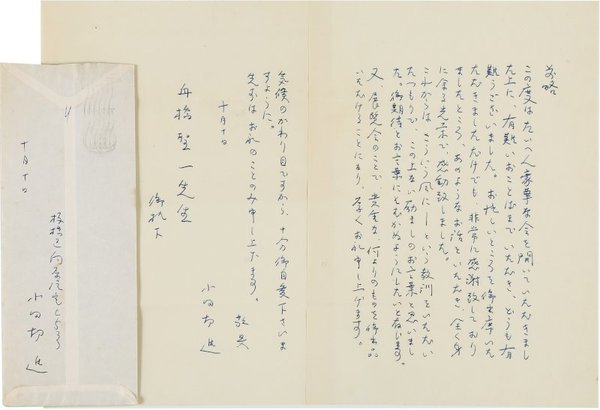 前略
この度はたいへん豪華な会を開いていただきまし
た上に、有難いおことばまでいただき、どうも有
難うございました。お忙しいところを御出席いた
だきましただけでも、非常に感謝致しており
ましたところ、あのようなお話をいただき、全く身
に余る光栄で、感動致しました。
これからは、こういう風に――という教訓をいただい
たつもりで、この上ない励ましのお言葉と思いまし
た。御期待とお言葉にそむかぬようにしたいと存じます。
又、展覧会のことで、貴重な何よりのものを御出品
いただけることになり、厚くお礼申し上げます。
気候のかわり目ですから、十分御自愛下さいま
すように。
先ずはお礼のことのみ申し上げます。
敬具
十月十日
小田切進
舟橋聖一先生
御机下
十月十日
板橋区向原
小田切進